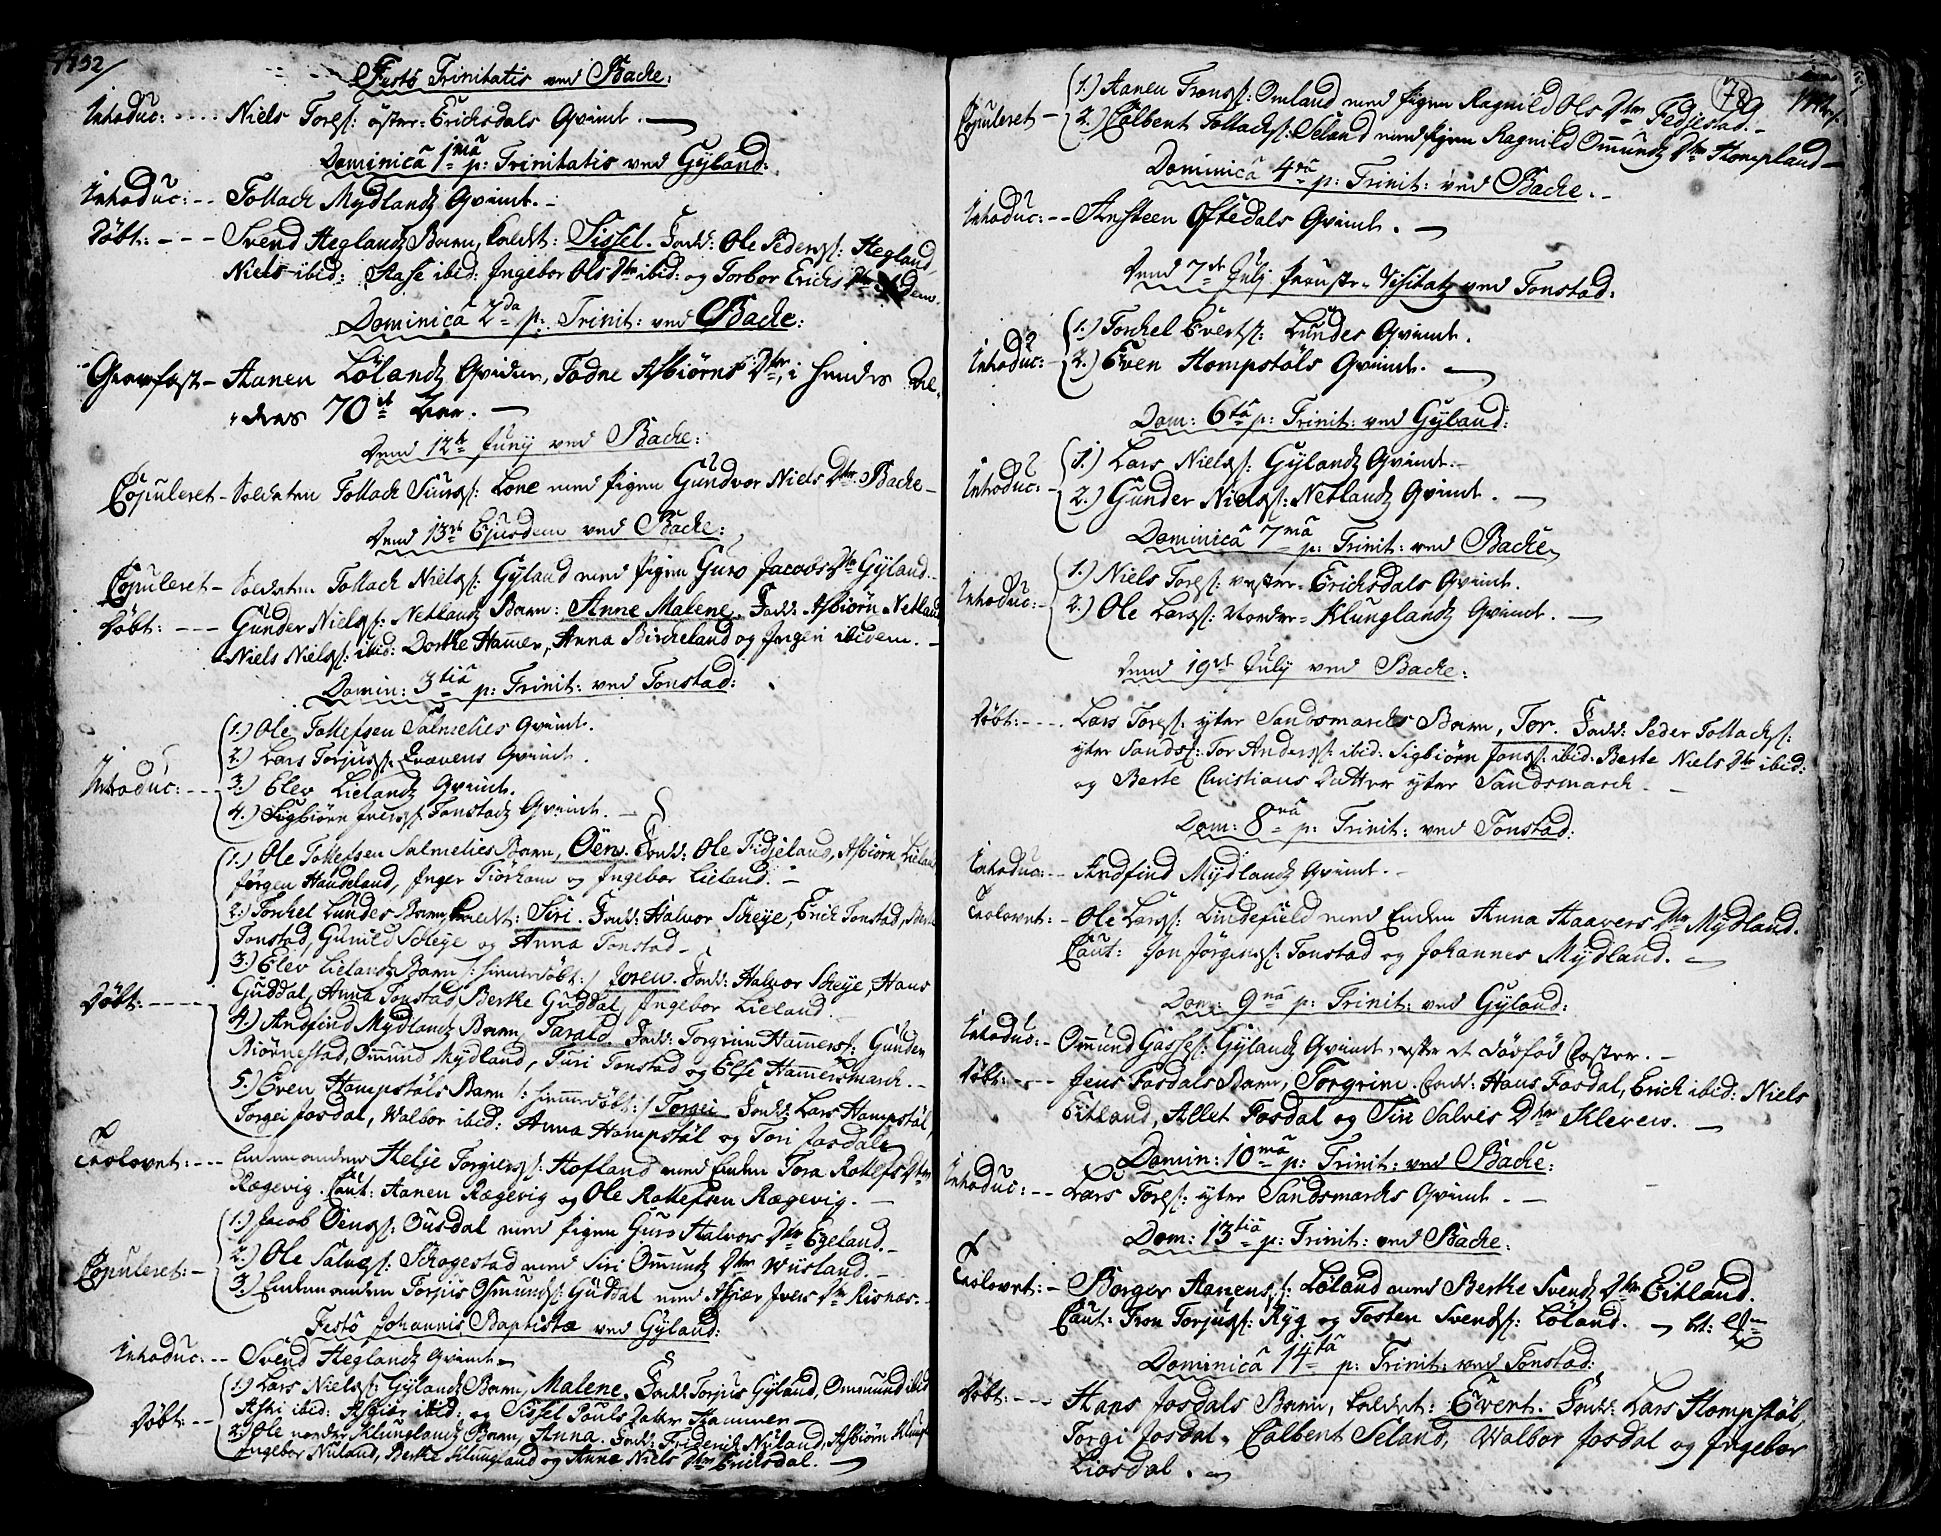 1752/
Festo Trinitatis ved Backe:
Introduc: ---- Niels Tores: öster-Erichsdals Qvinde. —
Dominicâ 1mâ p: Trinitatis ved Gÿland:
Introduc: -- Tollach Mÿdlandz Qvinde. -
Döbt: --- Svend Heglandz Barn, kaldt: Sissel. Fadd: Ole Peders: Hegland
Niels ibid: Aase ibid: Ingebor Ols Dtr ibid: og Torbor Erichs Dtr
Dominicâ 2da p: Trinit: ved Backe:
Gravfæst - Aanen Lölandz Qvinde, Todne Asbiörns Dtr, i hendes Al-
-ders 70de Aar. —
Dend 12te Junij ved Backe:
Copuleret - Soldaten Tollach Siurs: Lone med pigen Gundvor Niels Dtr Backe -
Dend 13de Ejusdem ved Backe:
Copuleret - Soldaten Tollach Niels: Gÿland med pigen Guro Jacobs Dtr Gÿland.
Döbt: --- Gunder Niels: Netlandz Barn: Anne Malene. Fadd: Asbiörn Netland
Niels Niels: ibid: Dorthe Hamer, Anna Bircheland og Ingeri ibidem. -
Domin: 3tiâ p: Trinit: ved Tonstad:
1.) Ole Tollefsen Salmelies Qvinde.
2.) Lars Torjus: Qvævens Qvinde.
Introduc: -- 3.) Elev Lielandz Qvinde.
4.) Sigbiörn Ivers: Tonstadz Qvinde. -
1.) Ole Tollefsen Salmelies Barn, Öen. Fadd: Ole Fidjeland, Asbiörn Lieland
Jörgen Haudeland, Inger Tiorham og Ingebor Lieland. -
2.) Torchel Lundes Barn, kaldt: Siri. Fadd: Halvor Scheje, Erich Tonstad,
Tonstad, Gunild Scheje og Anna Tonstad -
3.) Elev Lielandz Barn /: hiemmedöbt :/ Joren. Fadd: Halvor Scheje, Hans
Döbt: ---- Guddal, Anna Tonstad, Berthe Guddal, Ingebor Lieland.
4.) Andfind Mÿdlandz Barn, Tarald. Fadd: Torgrim Hamers: Gunder
Biörnestad, Omund Mÿdland, Turi Tonstad og Else Hamersmarch. -
5.) Even Hompstöls Barn /: hiemmedöbt :/ Torgei. Fadd: Lars Hompstöl,
Torgei Josdal, Walbor ibid: Anna Hompstöl og Tori Josdal
Trolovet: --- Enkemanden Helje Torgiers: Hofland med Enken Tora Rollefs Dtr
Rægevig. Caut: Aanen Rægevig og Ole Rollefsen Rægevig. —
1.) Jacob Öens: Ousdal med pigen Guro Halvors Dtr Egeland. -
Copuleret: - 2.) Ole Salves: Schogestad med Siri Omundz Dtr Wiisland. -
3.) Enkemanden Torjus Osmunds: Guddal med Asgiær Ivers Dtr Risnæs. -
Festo Johannis Baptistæ ved Gÿland:
Introduc: -- Svend Heglandz Qvinde
1.) Lars Niels: Gÿlandz Barn, Malene. Fadd: Torjus Gÿland, Ommund ibid
Döbt: -- Astri ibid: Asbiör ibid: og Sissel Pouls Datter Hammer -
2.) Ole nordre Klunglandz Barn, Anna. Fadd: Friderich Nuland, Asbiörn Klungl
Ingebor Nuland, Berthe Klungland og Anne Niels Dtr Erichsdal. —
78
1752.
Copuleret - 1.) Aanen Trons: Omland med pigen Ragnild Ols Dtr Fedjestad. -
2.) Colbent Tollachs: Seland med pigen Ragnild Omundz Dtr Hompland -
Dominicâ 4tâ p: Trinit: ved Backe. -
Introduc: -- Ansteen Oftedals Qvinde. —
Dend 7de Julij Provste-Visitatz ved Tonstad:
Introduc: -- 1.) Torchel Everts: Lundes Qvinde.
2.) Even Hompstöls Qvinde. —
Dom: 6tâ p: Trinit: ved Gÿland:
Introduc: - 1.) Lars Niels: Gÿlandz Qvinde. -
2.) Gunder Niels: Netlandz Qvinde. —
Dominicâ 7mâ p: Trinit: ved Backe
Introduc: - 1.) Niels Tores: vester-Erichsdals Qvinde.
2.) Ole Lars: Nordre-Klunglandz Qvinde. —
Dend 19de Julij ved Backe:
Döbt: ---- Lars Tores: ytre Sandsmarchs Barn, Tor. Fadd: Peder Tollachs:
ytre Sands: Tor Anders: ibid: Sigbiörn Jons: ibid: Berte Niels Dtr ibid:
og Berte Christians Datter ytre Sandsmarch. -
Dom: 8vâ p: Trinit: ved Tonstad:
Introduc: -- Andfind Mÿdlandz Qvinde. -
Trolovet: - Ole Lars: Lindefield med Enken Anna Haavers Dtr Mÿdland.
Caut: Jon Jörgens: Tonstad og Johannes Mÿdland. —
Dom: 9nâ p: Trinit: ved Gÿland:
Introduc: - Omund Gasses: Gÿlandz Qvinde, efter et dödföd Foster. -
Döbt: --- Jens Fosdals Barn, Torgrim. Fadd: Hans Fosdal, Erich ibid: Niels
Eitland, Allet Fosdal og Siri Salves Dtr Kleven. —
Domin: 10mâ p: Trinit: ved Backe:
Introduc: -- Lars Tores: ytre Sandsmarchs Qvinde. —
Dom: 13tiâ p: Trinit: ved Backe:
Trolovet: - Borger Aanens: Löland med Berthe Svendz Dtr Eitland.
Caut: Tron Torjus: Rÿg og Tosten Svends: Löland. —
Dominicâ 14tâ p: Trinit: ved Tonstad:
Döbt: --- Hans Josdals Barn, kaldet: Evert. Fadd: Lars Hompstöl,
Torgi Josdal, Colbent Seland, Walbor Josdal og Ingebor
Liosdal. —